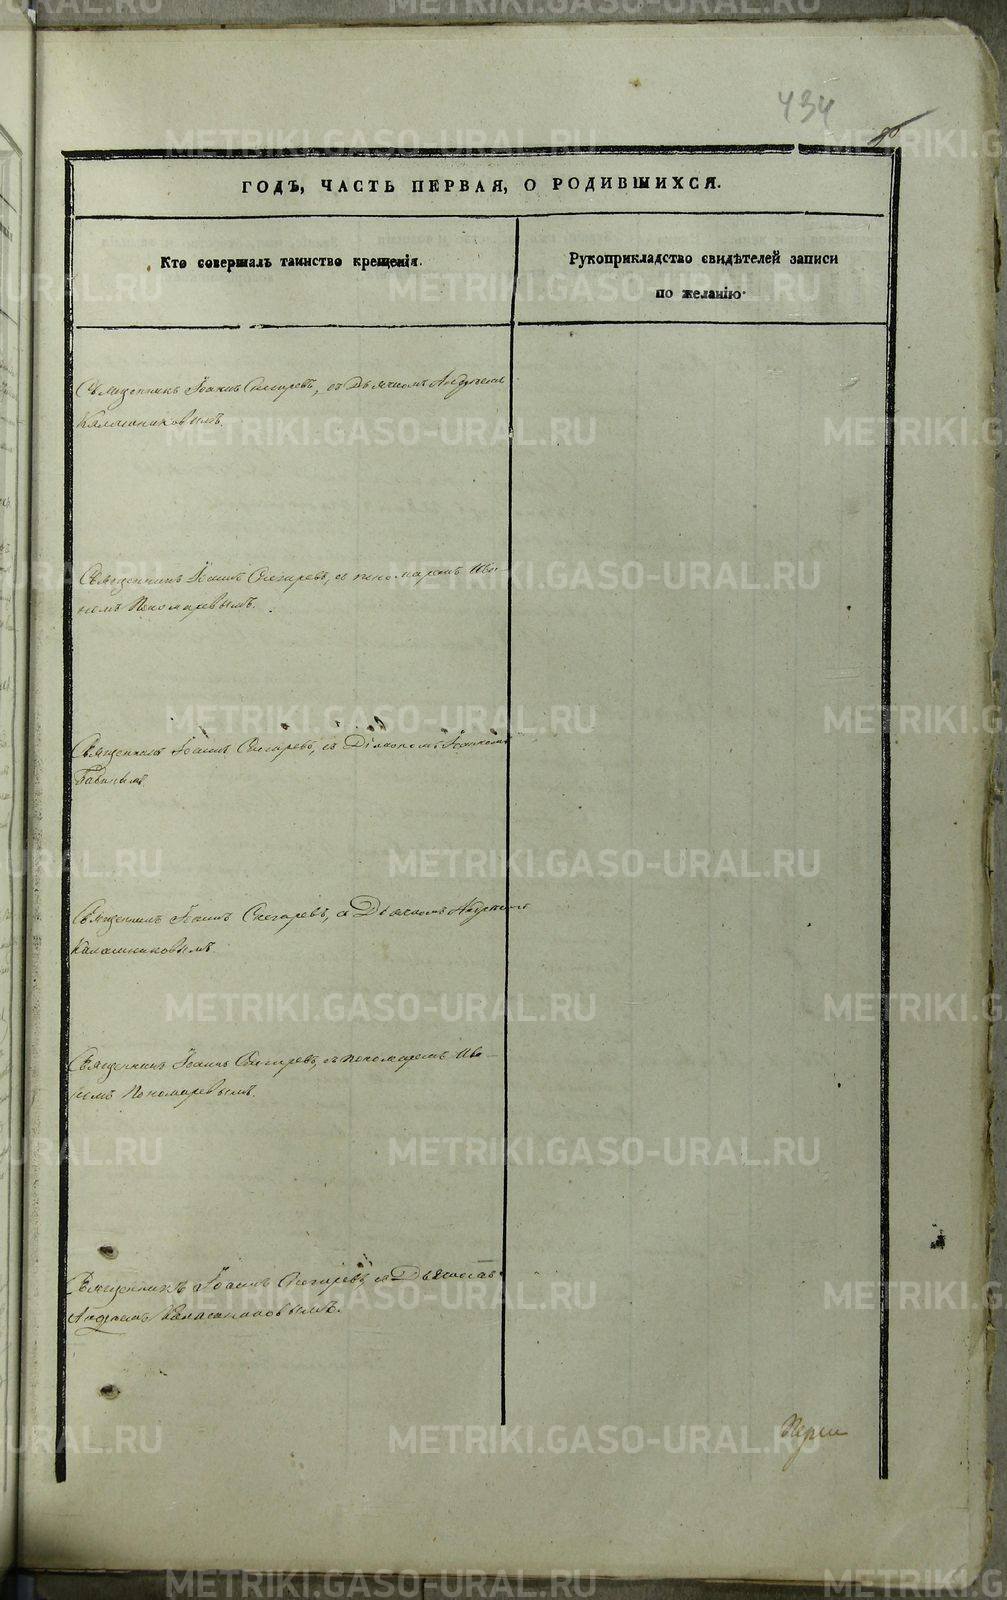 434
ГОДЪ, ЧАСТЬ ПЕРВАЯ, О РОДИВШИХСЯ.
Кто совершалъ таинство крещенія.
Рукоприкладство свидѣтелей записи
по желанію.
Священникъ Іоаннъ Снегиревъ, съ Дьячкомъ Андреемъ
Калашниковымъ.
Священникъ Іоаннъ Снегиревъ, съ пономаремъ Ива-
номъ Пономаревымъ.
Священникъ Іоаннъ Снегиревъ, съ Діакономъ Іоанномъ
Бабинымъ.
Священникъ Іоаннъ Снегиревъ, съ Дьячкомъ Андреемъ
Калашниковымъ.
Священникъ Іоаннъ Снегиревъ, съ пономаремъ Ива-
номъ Пономаревымъ.
Священникъ Іоаннъ Снегиревъ, съ Дьячкомъ
Андреемъ Калашниковымъ.
METRIKI.GASO-URAL.RU